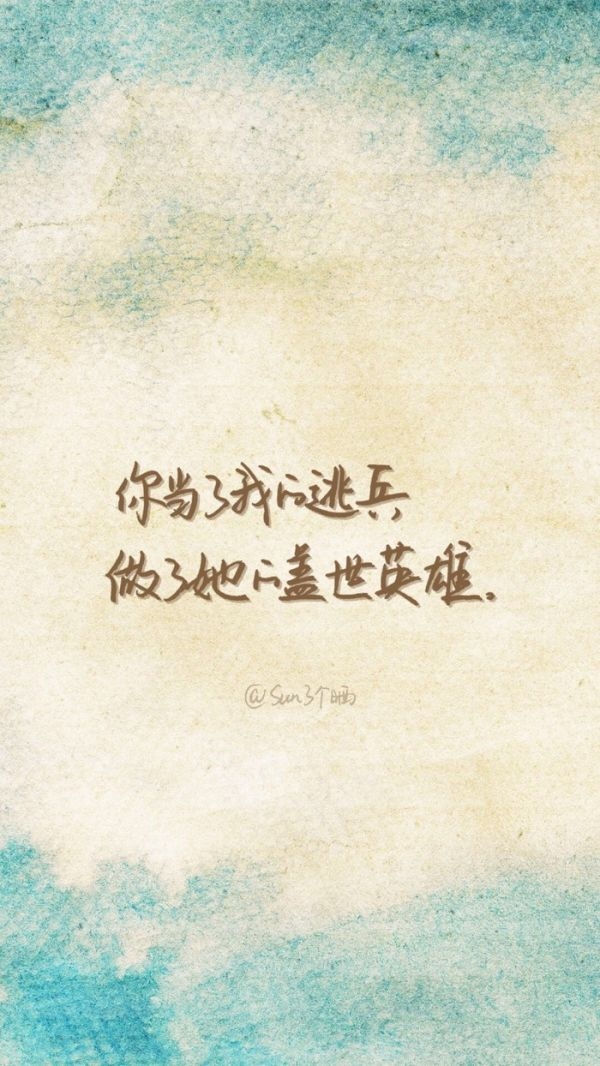 你当了我的逃兵
做了她的盖世英雄.
@Sun了个晒